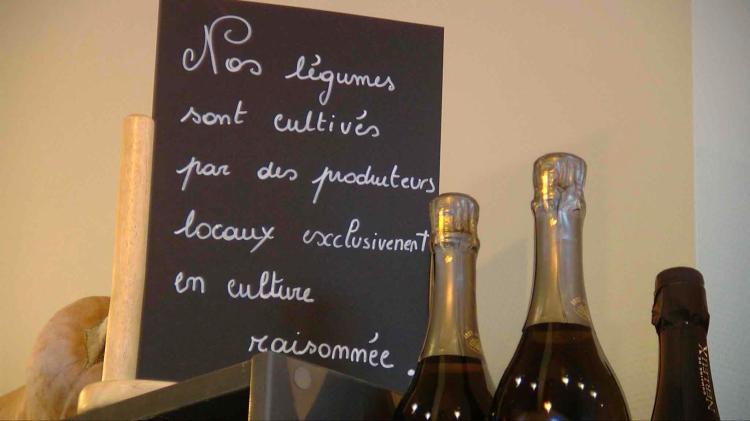 Nos légumes
sont cultivés
par des producteurs
locaux exclusivenent
en culture
raisonnée.